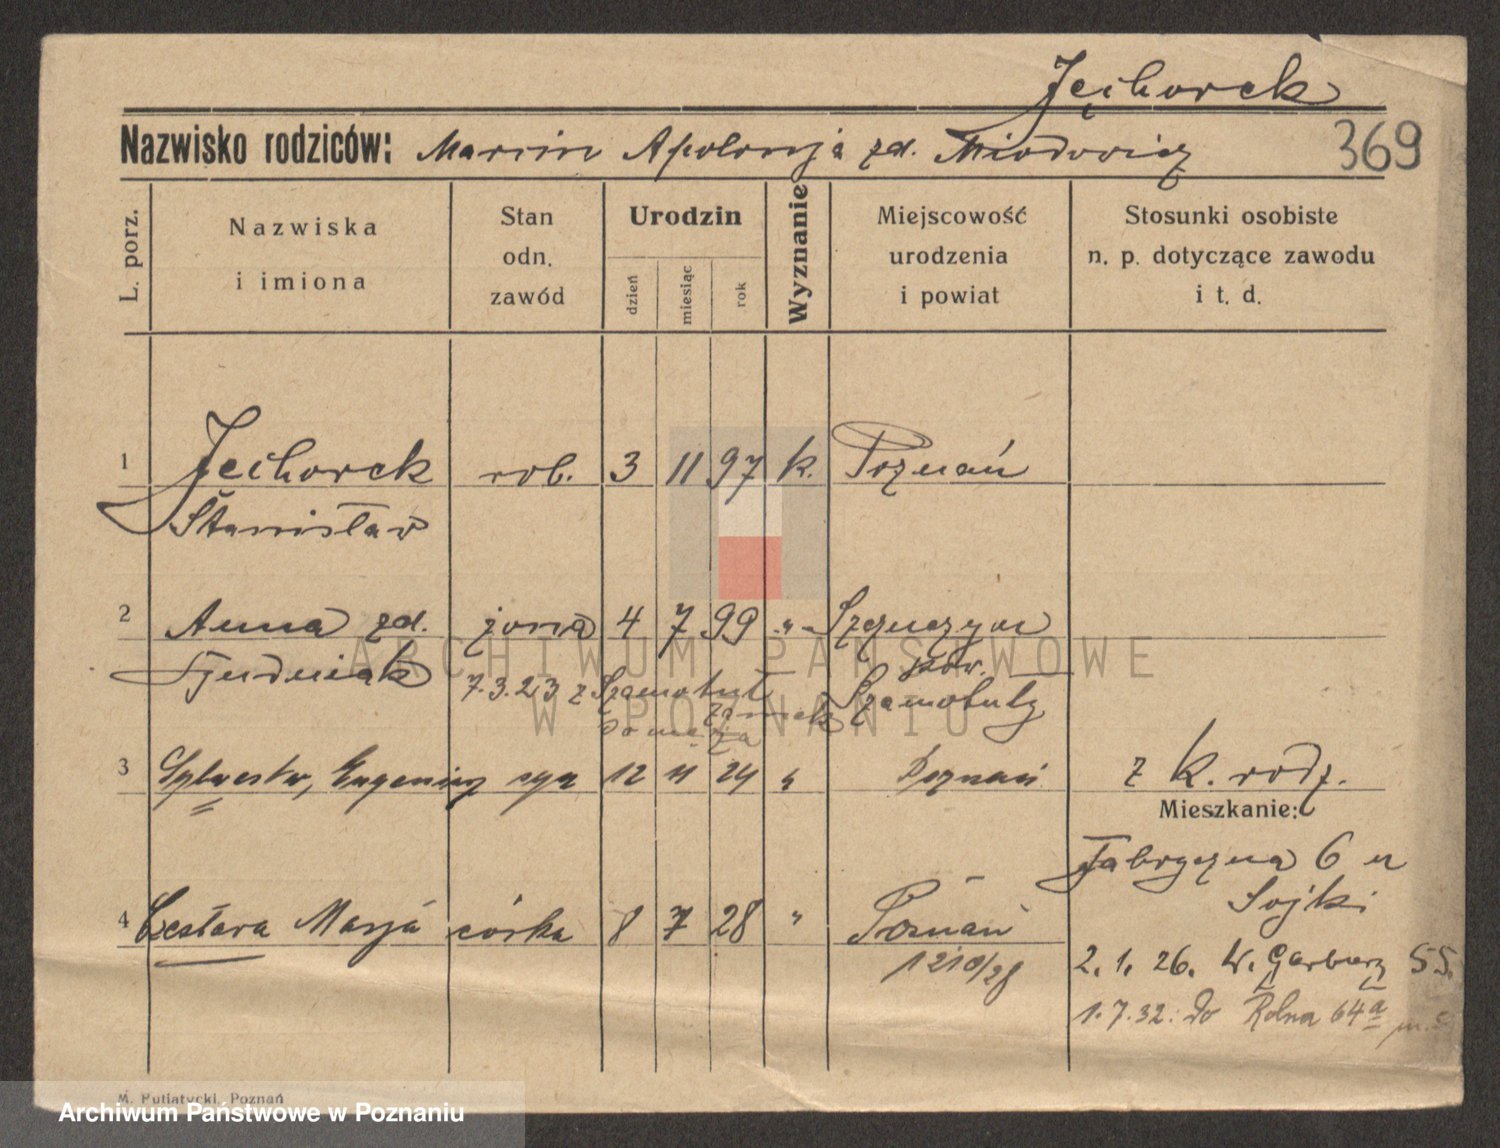 Jęchorek
Nazwisko rodziców: Marcin Apolonja zd. Miodowicz
369
L. porz.
Nazwiska
i imiona
Stan
odn.
zawód
Urodzin
dzień
miesiąc
rok
Wyznanie
Miejscowość
urodzenia
i powiat
Stosunki osobiste
n. p. dotyczące zawodu
i t. d.
1 Jechorek rob. 3 11 97 k. Poznań
Stanisław
2 Anna zd. żona 4 7 99 " Szczuczyn
pow.
7.3.23 z Szamotuł Szamotuły
zamek
do męża
3 Sylwestr, Eugeniusz syn 12 11 24 " Poznań z k. rodz.
Mieszkanie:
Fabryczna 6 u
Sojki
4 Czesława Marja córka 8 7 28 " Poznań
1210/28
2. 1. 26. W. Garbary 55.
1.7.32: do Rolna 64a m.
M. Putiatycki, Poznań
ARCHIWUM PAŃSTWOWE
W POZNANIU
Archiwum Państwowe w Poznaniu